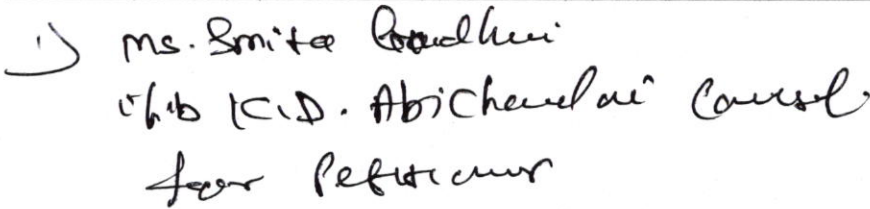 1) Ms. Smita Gandhi
i/b K.D. Abichandani Counsel
for Petitioner